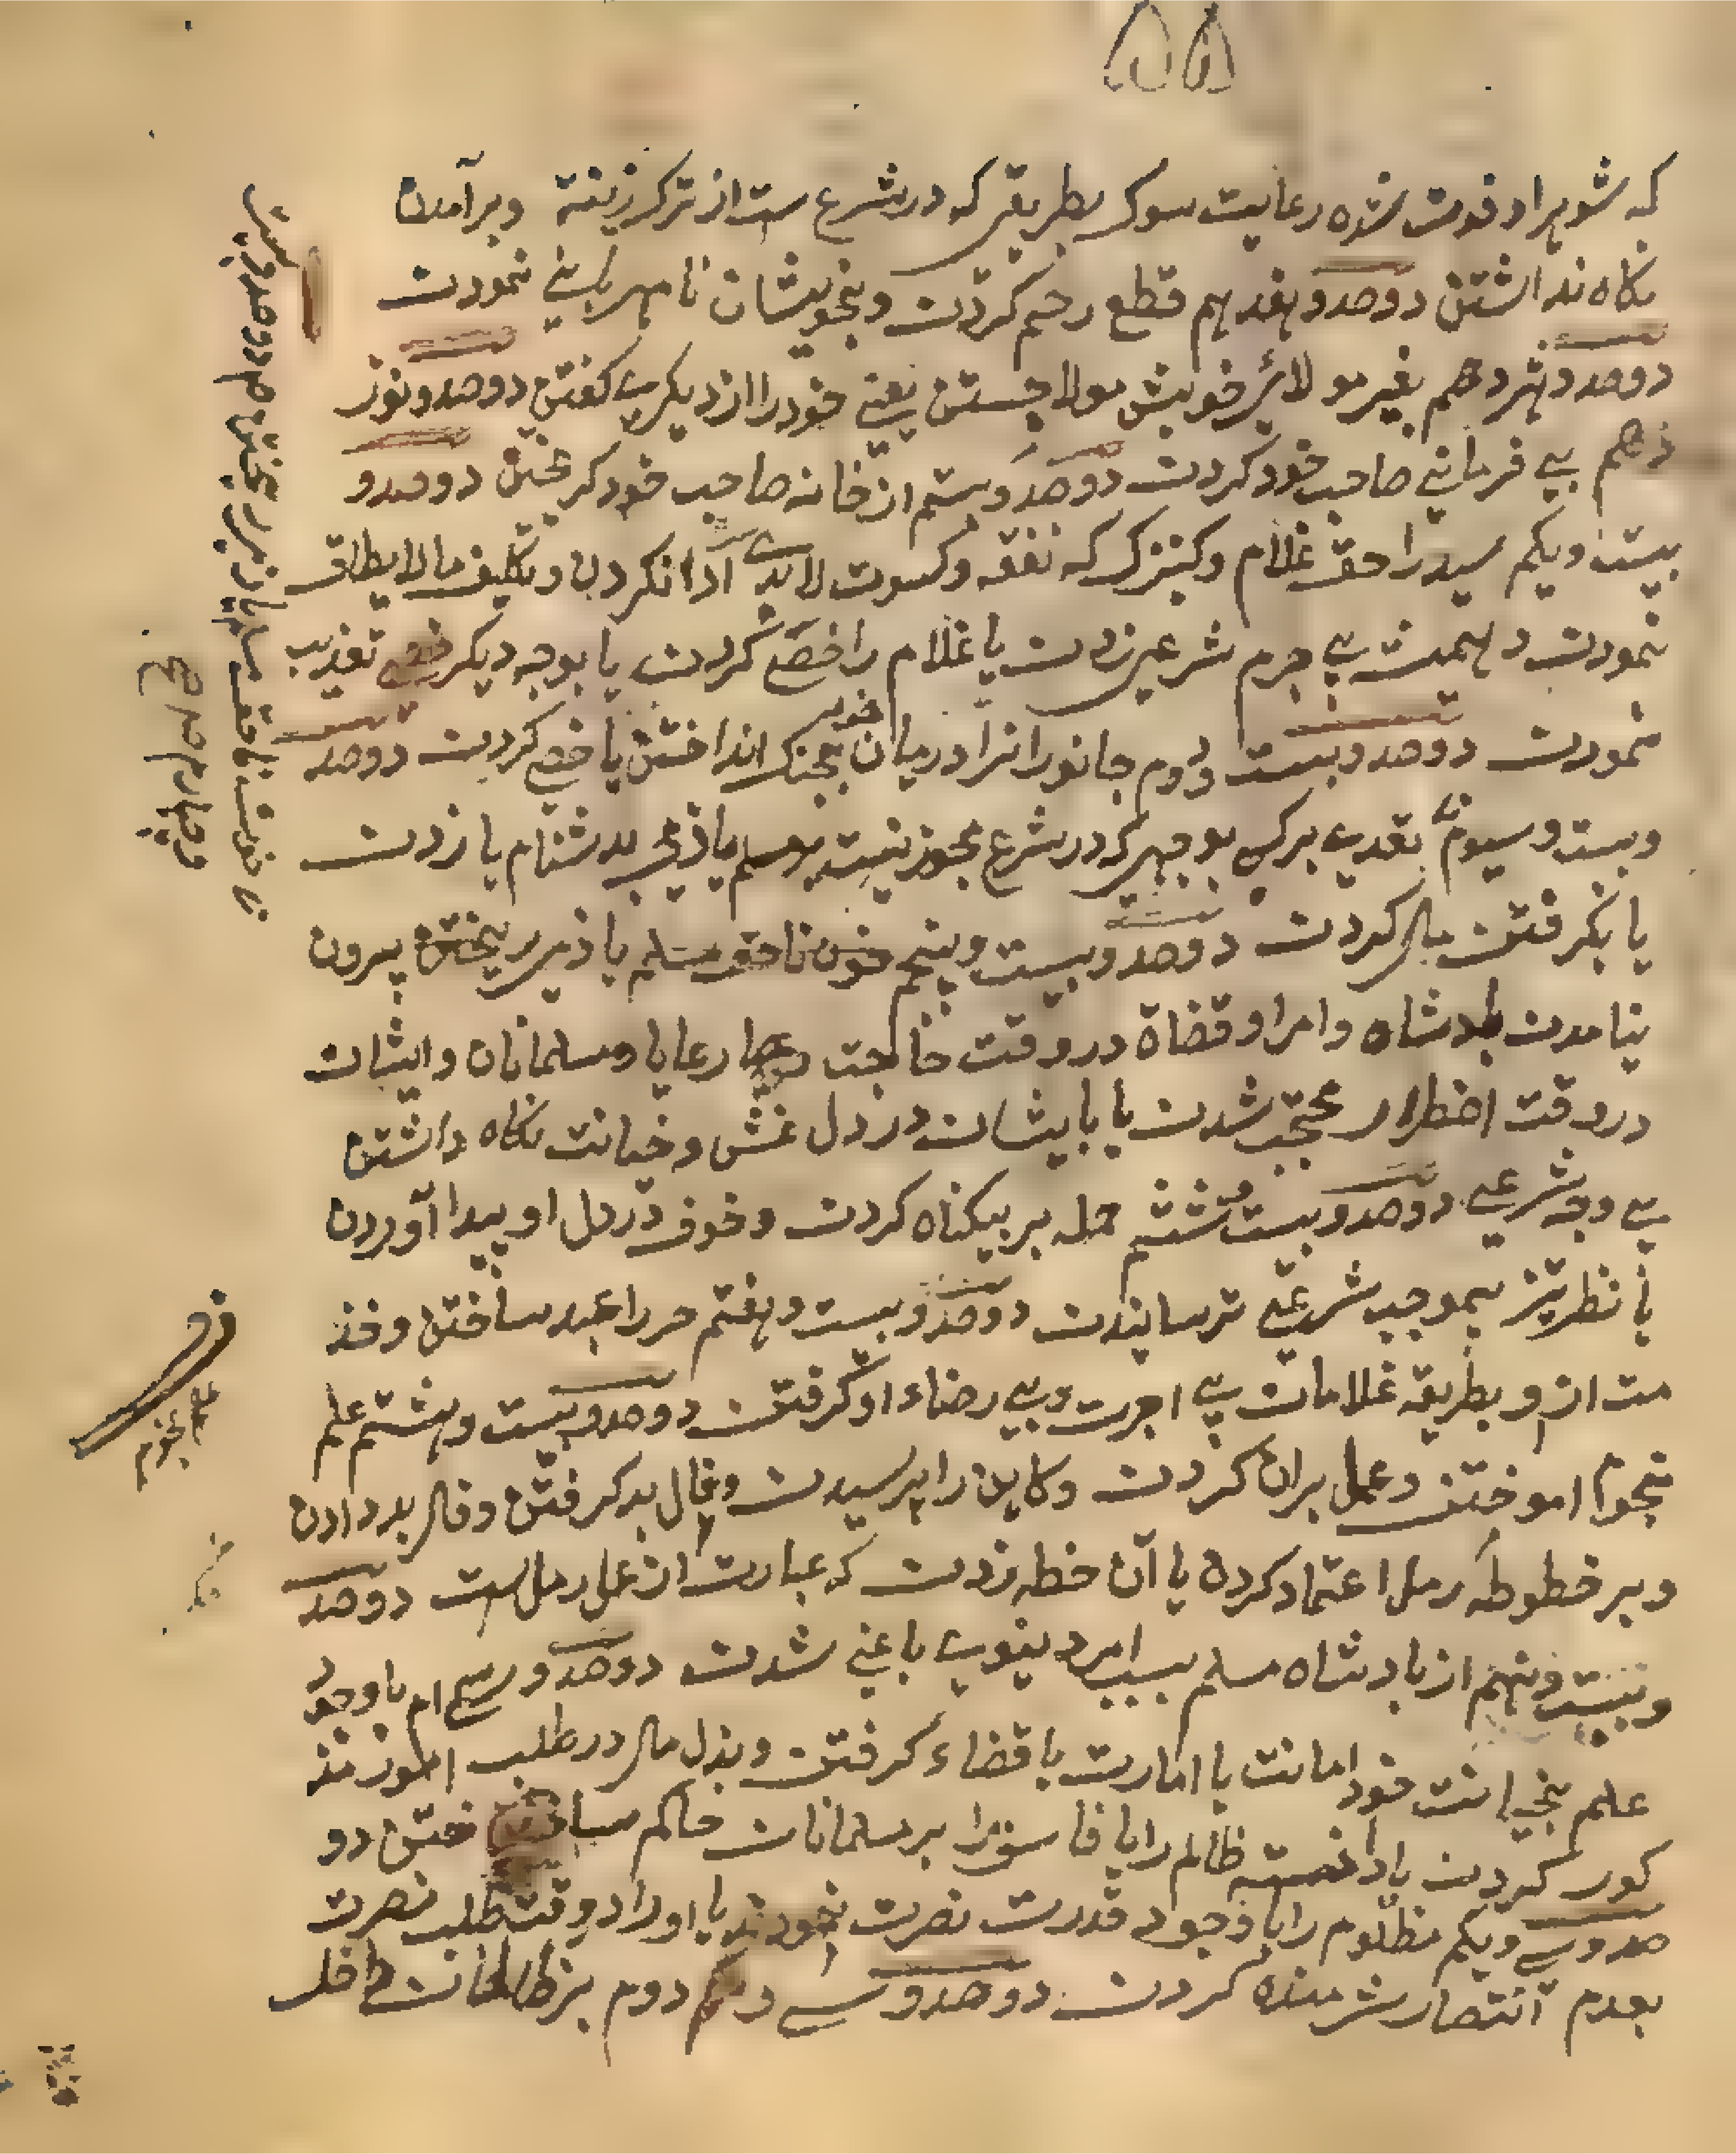 که شوهر او فوت شده رعایت سوک بطریقی که در شرع ست از ترک زینته وبرآمدن
نکاه نداشتن دوصدو هفدهم قطع رحم کردن وبخویشان نامهربانی نمودن
دوصدوهژدهم بغیر مولائی خویش مولا جستن یعنی خودرا از دیکری کفتن دوصدونوز
دهم بی فرمانی صاحب خود کردن دوصدوبیستم از خانه صاحب خود کریختن دوصدو
بیست ویکم سید را حق غلام وکنیزک که نفقه وکسوت لابدی ادا نکردن وتکلیف مالا یطاق
نمودن وبی جرم شرعی زدن یا غلام را خصی کردن یا بوجه دیکر تعذیب
نمودن دوصدوبیست ودوم جانورانرا درمیان خود بجنک انداختن یا خصی کردن دوصد
وبیست وسیوم تعدی برکسی بوجهی که در شرع مجوز نیست بر مسلم یا ذمی بدشنام یا زدن
یا بکرفتن مال کردن دوصدوبیست وپنجم خون ناحق مسلم یا ذمی ریختن بیرون
نیامدن بادشاه وامرا وقضاة در وقت حاجت رعایا ومسلمانان وایشان
در وقت اضطرار محتجب شدن یا با ایشان در دل غش وخیانت نکاه داشتن
بی وجه شرعی دوصدوبیست وششم حمله بر بیکناه کردن وخوف در دل او پیدا آوردن
یا نظر تیز بیموجب شرعی ترسانیدن دوصدوبیست وهفتم حر را عبد ساختن وخذ
مت ازو بطریقه غلامان بی اجرت وبی رضاء او کرفتن دوصدوبیست وهشتم علم
نجوم اموختن وعمل بران کردن وکاهن را پرسیدن وفال بد کرفتن وفال بد دادن
وبر خطوطه رمل اعتماد کردن یا آن خطه زدن که عبارت از عمل رمل است دوصد
وبیست ونهم از بادشاه مسلم بسبب امر دینوی باغی شدن دوصدو سی ام باوجود
علم بخیانت خود امانت یا امارت یا قضاء کرفتن وبذل مال در طلب امور مذ
کور کردن یا دانسته ظالم را یا فاسق را بر مسلمانان حاکم ساختن دو
صدوسی ویکم مظلوم را با وجود قدرت نصرت ننمودن یا او را در وقت طلب نصرت
بعدم انتصار شرمنده کردن دوصدو سی ودوم بر ظالمان داخل
علم نجوم